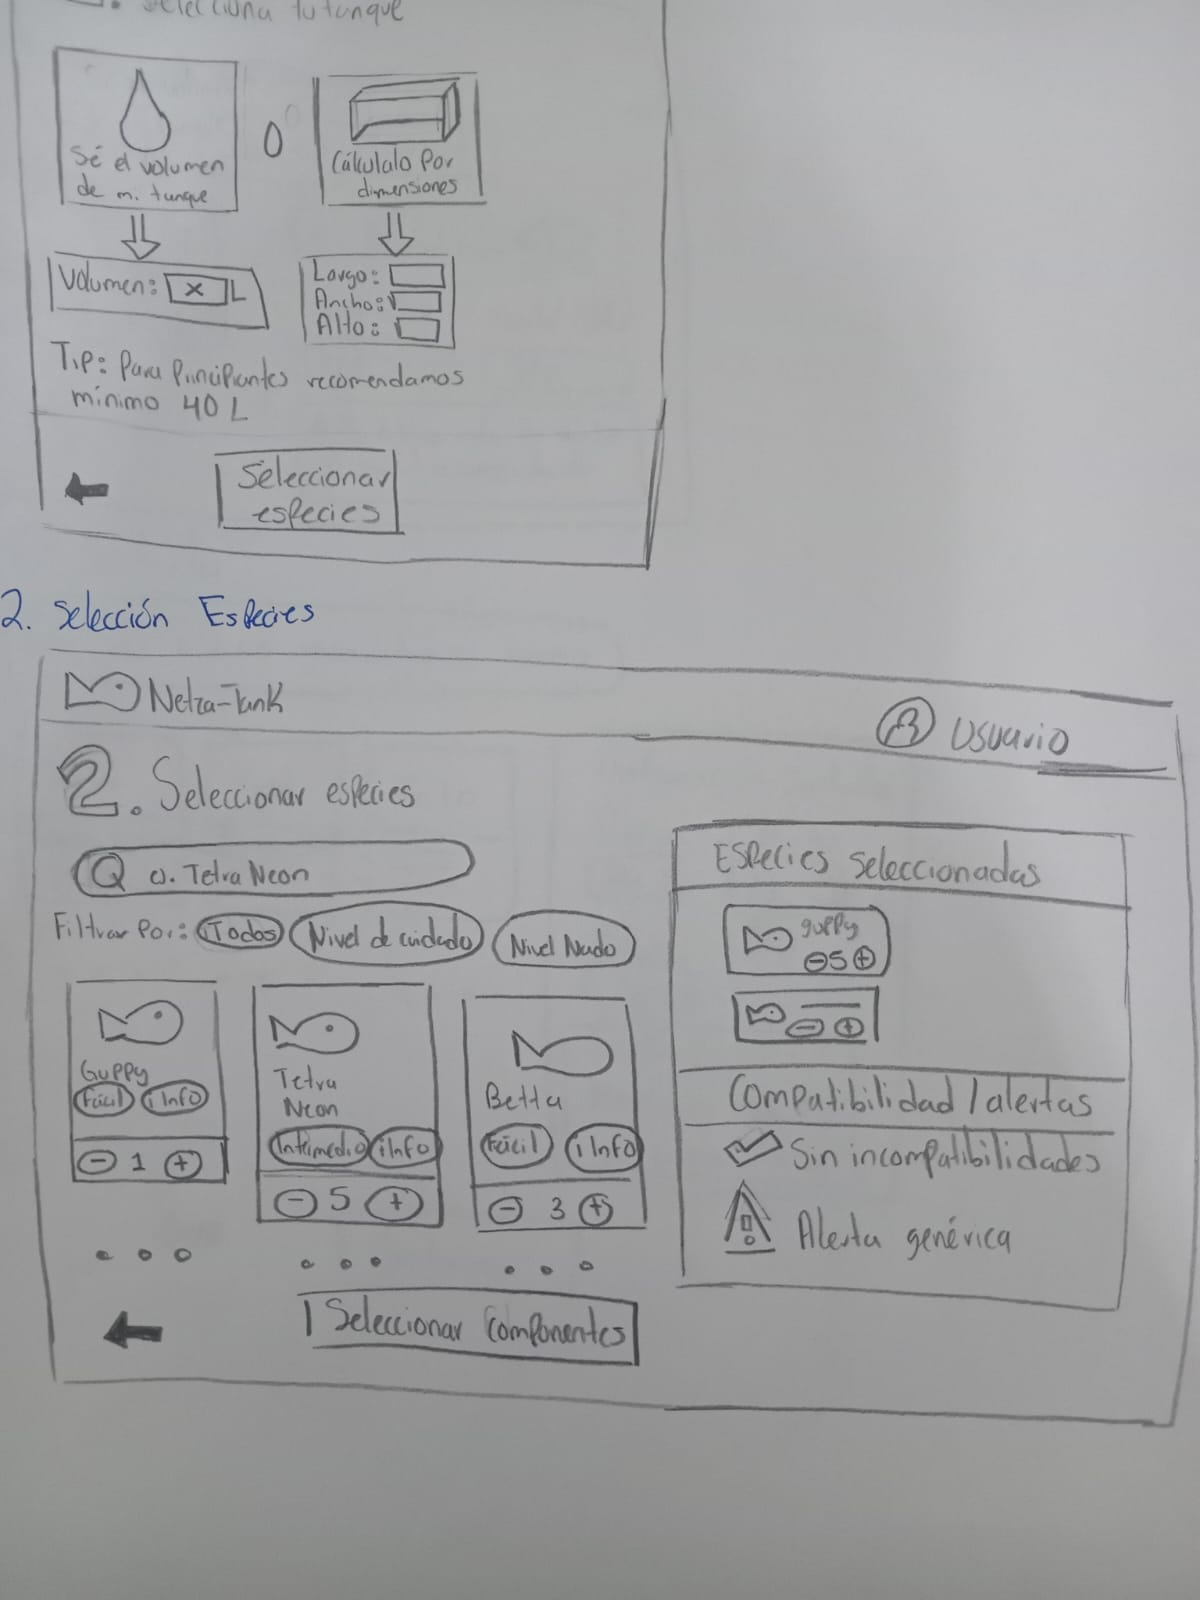 Selecciona tu tanque
Sé el volumen
de mi tanque
O
Cálculalo Por
dimensiones
Volumen: x L
Largo:
Ancho:
Alto:
Tip: Para Principiantes recomendamos
mínimo 40 L
Seleccionar
especies
2. Selección Especies
Netza-Tank
Usuario
2. Seleccionar especies
ej. Tetra Neon
Filtrar Por: Todos Nivel de cuidado Nivel Nado
Guppy
Fácil i Info
- 1 +
Tetra
Neon
Intermedio i Info
- 5 +
Betta
Fácil i Info
- 3 +
Especies seleccionadas
guppy
- 5 +
- +
Compatibilidad / alertas
Sin incompatibilidades
Alerta genérica
Seleccionar Componentes